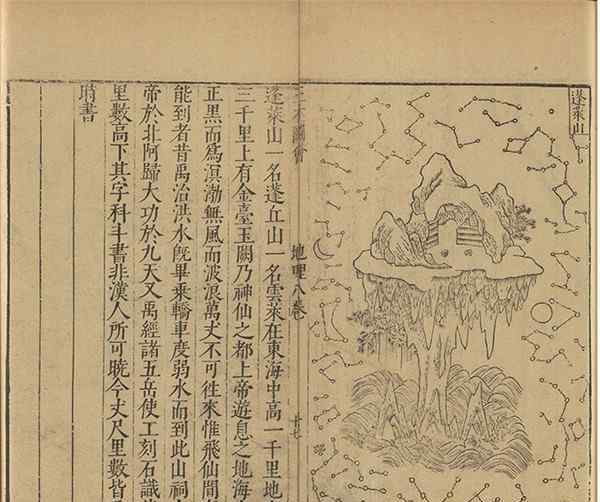 蓬萊山
三才圖會
地理八卷
十七
蓬萊山一名蓬丘山一名雲萊在東海中高一千里地
三千里上有金臺玉闕乃神仙之都上帝遊息之地海
正黑而爲溟渤無風而波浪萬丈不可徃來惟飛仙間
能到者昔禹治洪水旣畢乘轎車度弱水而到此山祠
帝於北阿歸大功於九天又禹經諸五岳使工刻石識
里數高下其字科斗書非漢人所可曉今丈尺里數皆
書